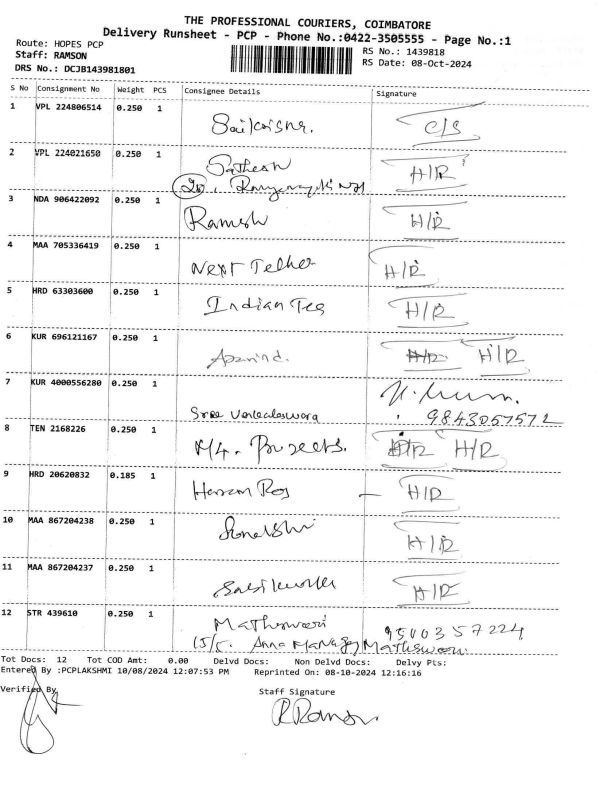 THE PROFESSIONAL COURIERS, COIMBATORE
Delivery Runsheet - PCP - Phone No.:0422-3505555 - Page No.:1
Route: HOPES PCP
RS No.: 1439818
Staff: RAMSON
RS Date: 08-Oct-2024
DRS No.: DCJB143981801
S No Consignment No Weight PCS Consignee Details Signature
1 VPL 224806514 0.250 1 C/S
2 VPL 224021650 0.250 1 Sathesh H/R
20,
3 NDA 906422092 0.250 1 Ramesh H/R
4 MAA 705336419 0.250 1 Next H/R
5 HRD 63303600 0.250 1 Indian Teg H/R
6 KUR 696121167 0.250 1 Aravind. H/R H/R
7 KUR 4000556280 0.250 1
Sree Venkateswara 9843057572
8 TEN 2168226 0.250 1 H/R H/R
9 HRD 20620832 0.185 1 H/R
10 MAA 867204238 0.250 1 H/R
11 MAA 867204237 0.250 1 H/R
12 STR 439610 0.250 1 Matheswari 9500357224
15/5. Anna
Tot Docs: 12 Tot COD Amt: 0.00 Delvd Docs: Non Delvd Docs: Delvy Pts:
Entered By :PCPLAKSHMI 10/08/2024 12:07:53 PM Reprinted On: 08-10-2024 12:16:16
Verified By Staff Signature
R Ramson